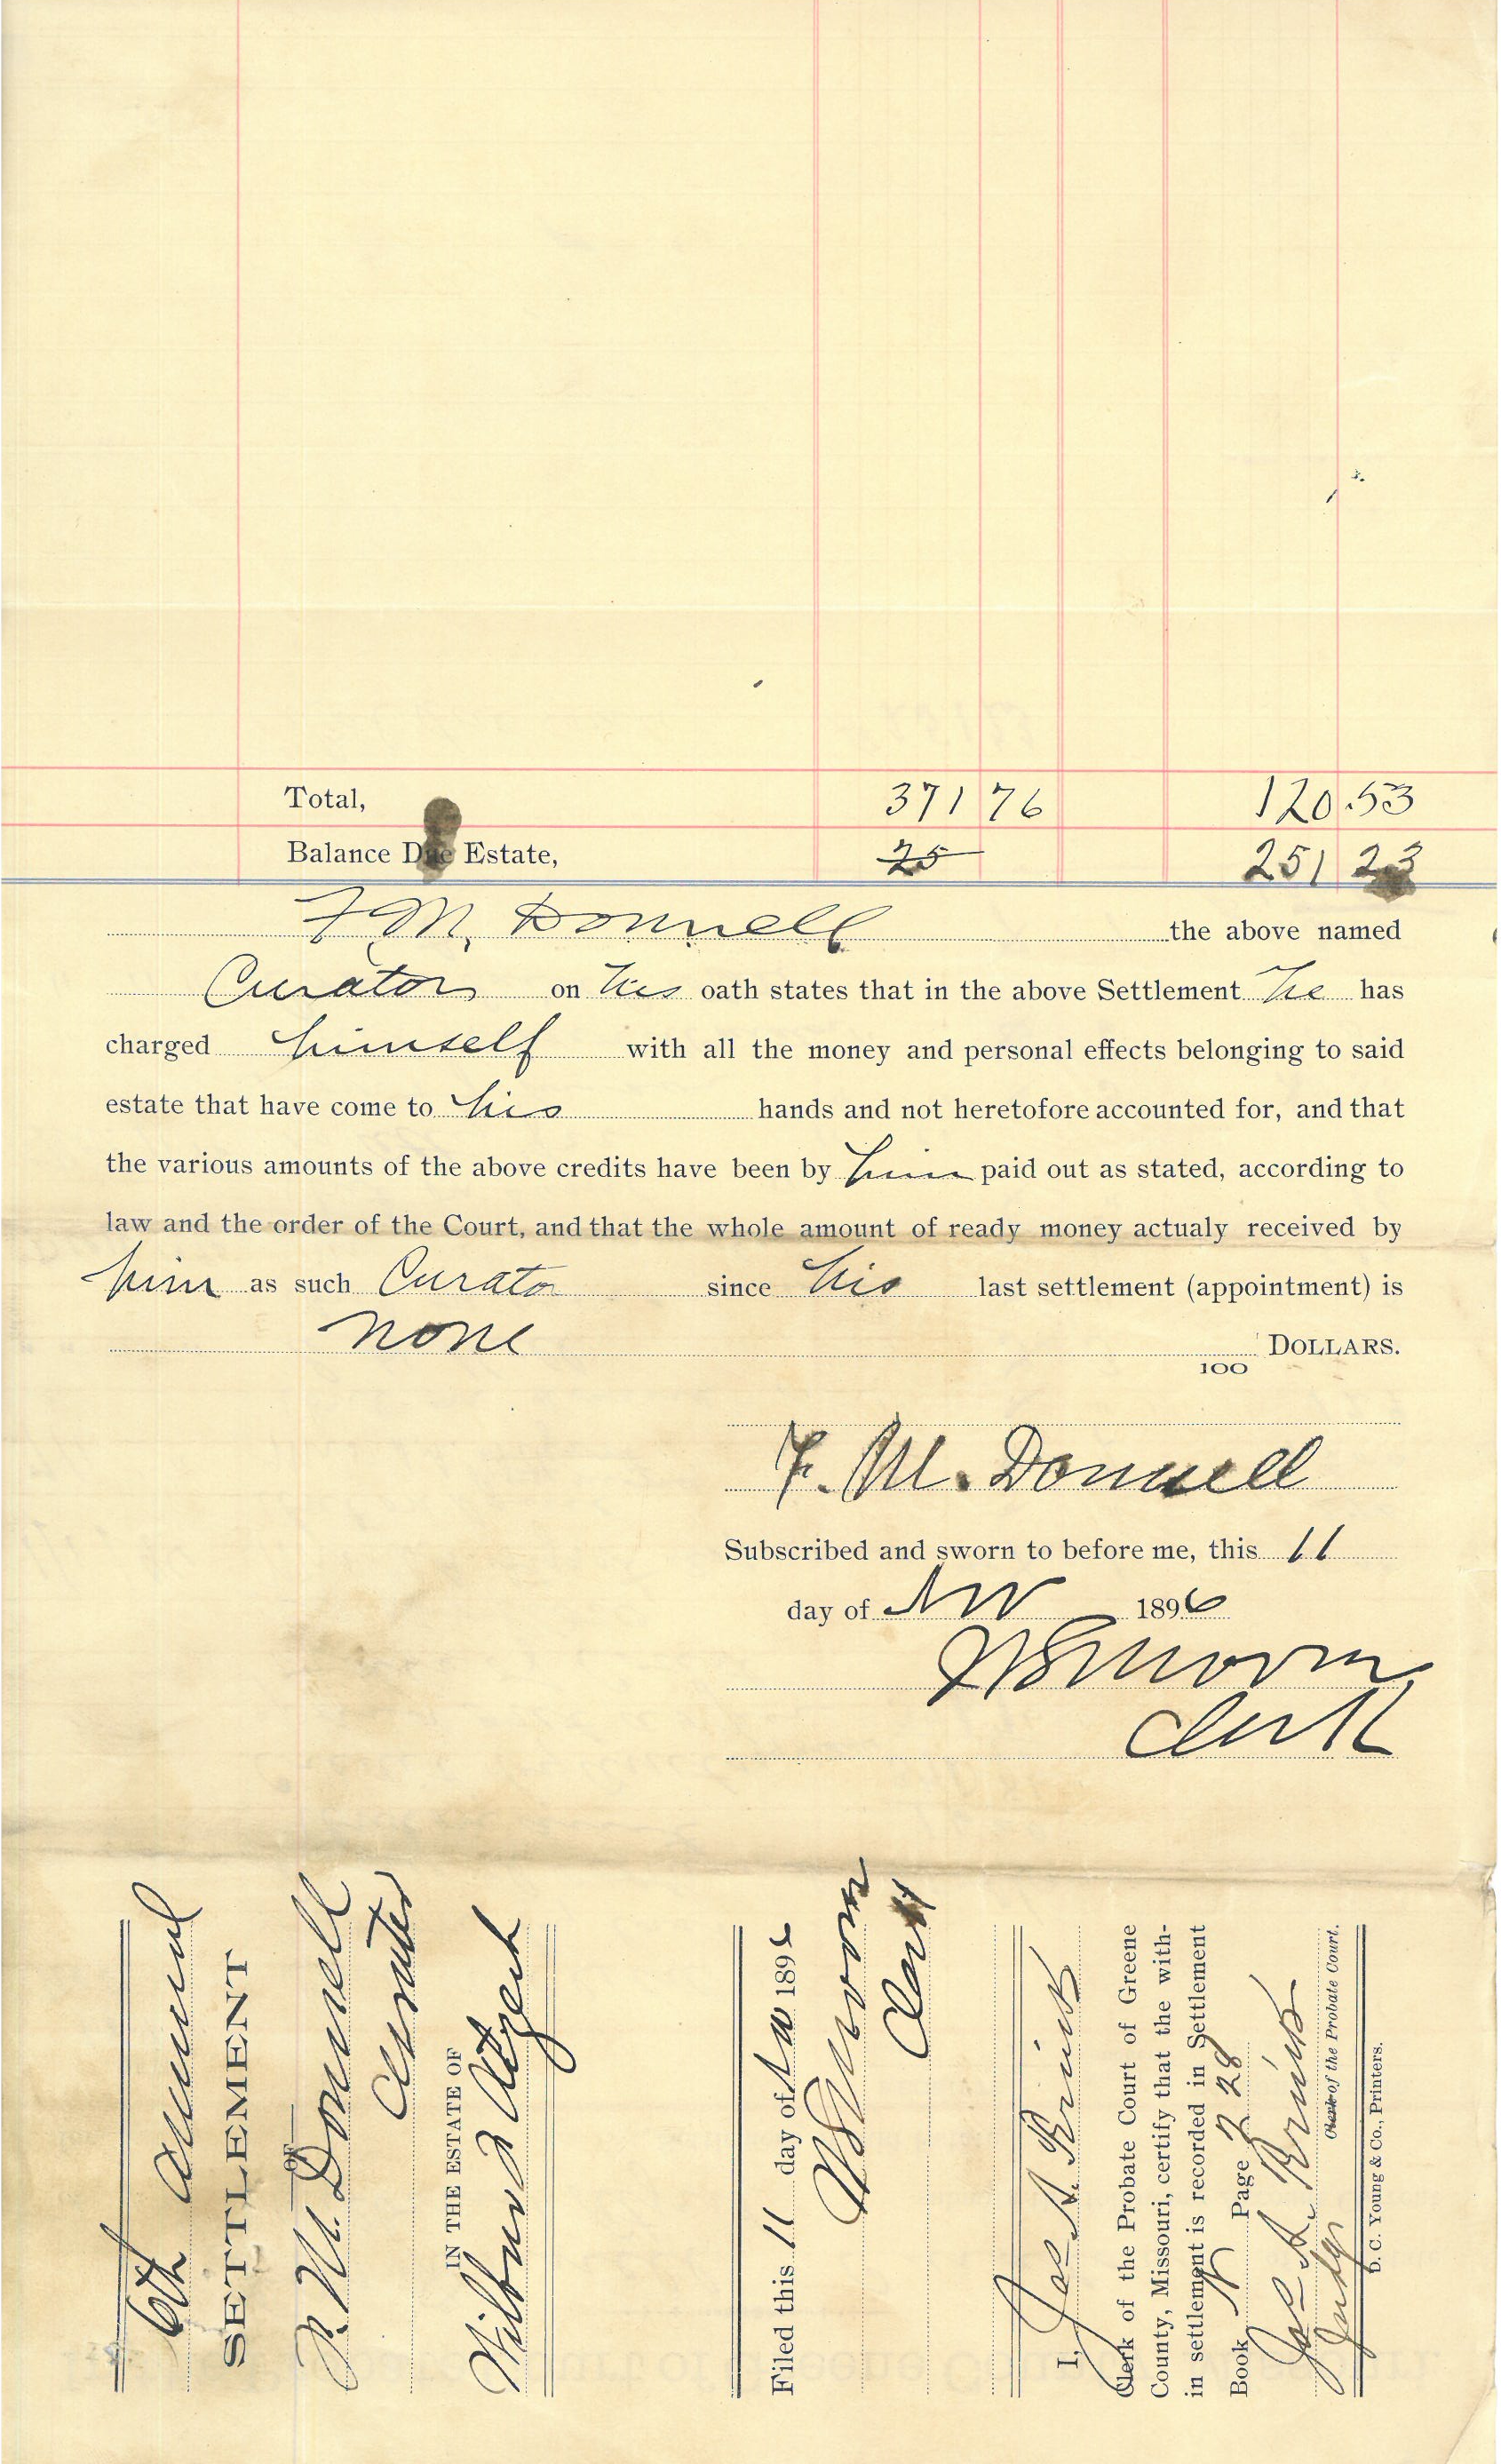 Total, 371 76 120.53
Balance Due Estate, 25 251 23
F. M. Donnell the above named
Curator on his oath states that in the above Settlement he has
charged himself with all the money and personal effects belonging to said
estate that have come to his hands and not heretofore accounted for, and that
the various amounts of the above credits have been by him paid out as stated, according to
law and the order of the Court, and that the whole amount of ready money actualy received by
him as such Curator since his last settlement (appointment) is
none DOLLARS.
100
F. M. Donnell
Subscribed and sworn to before me, this 11
day of Nov 1896
Clerk
6th Annual
SETTLEMENT
OF
F. M. Donnell
Curator
IN THE ESTATE OF
Wilburn
Filed this 11 day of Nov 1896
Clerk
I, Jas A.
Clerk of the Probate Court of Greene
County, Missouri, certify that the with-
in settlement is recorded in Settlement
Book N Page 228
Jas A.
Judge Clerk of the Probate Court.
D. C. Young & Co., Printers.